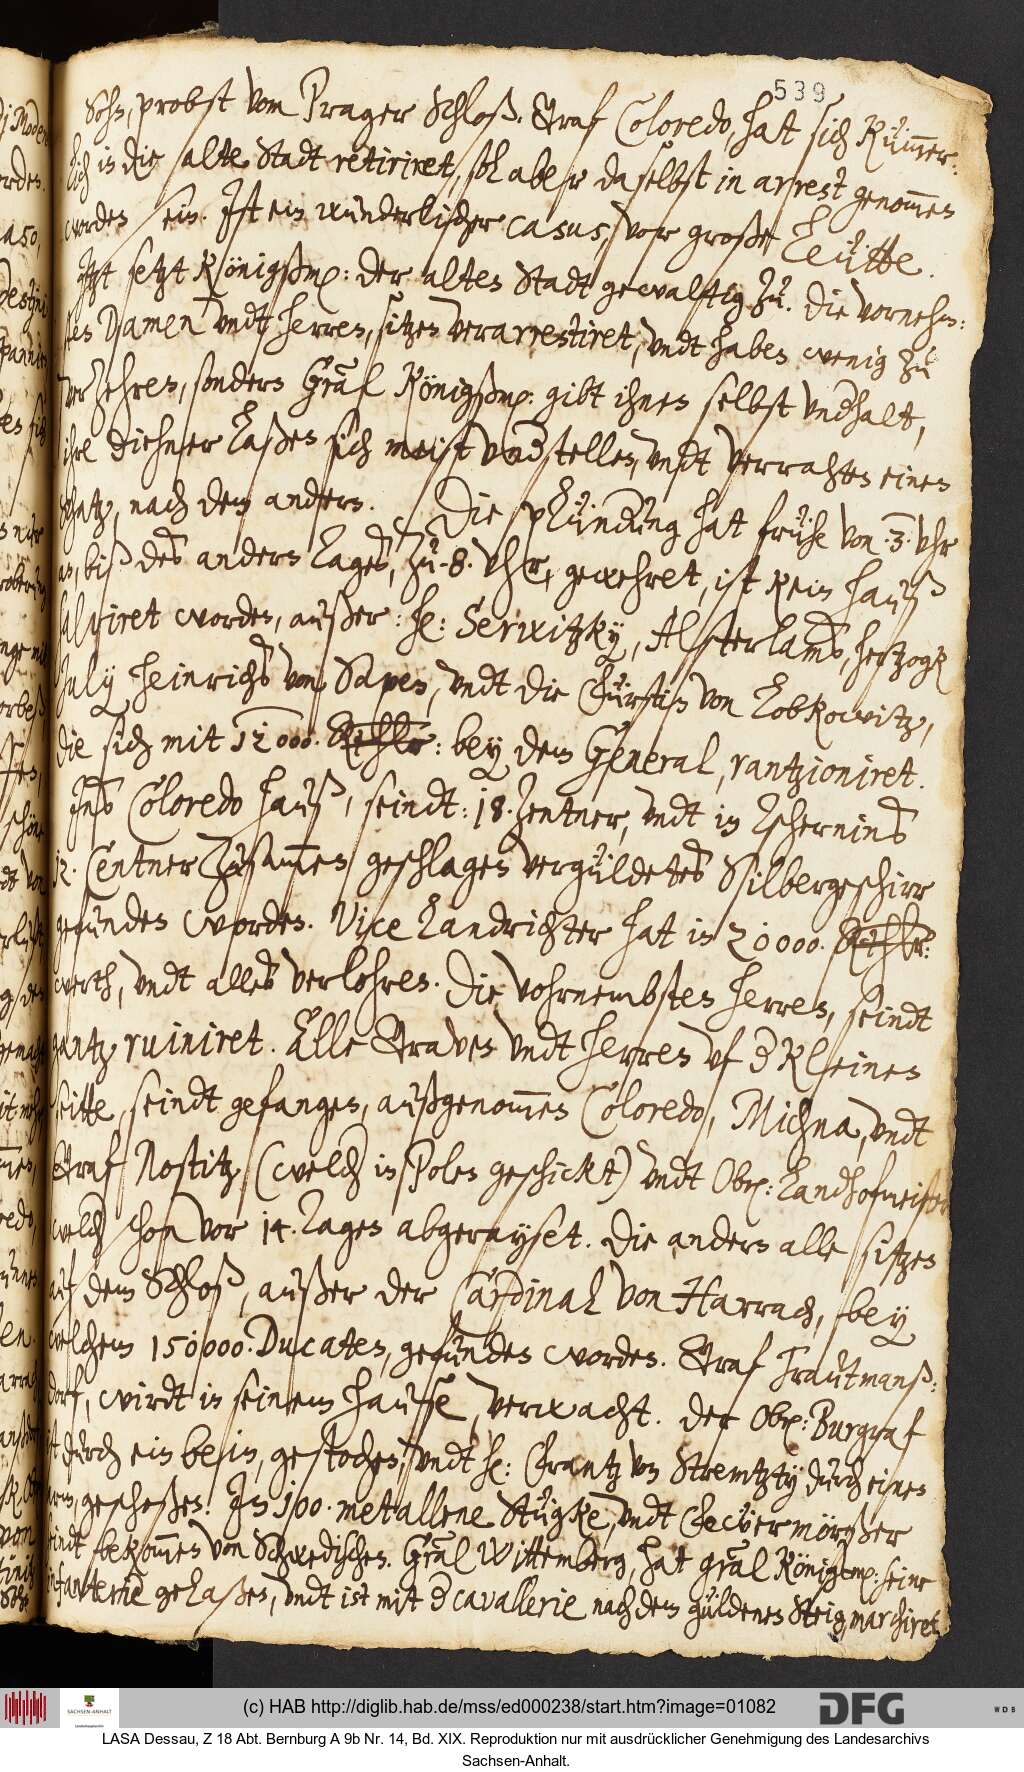 539
Sohn, probst vom Prager Schloß. Graf Coloredo, hat sich kümmer:
lich in die alte Stadt retiriret, sol aber daselbst in arrest genommen
worden sein. Ist ein wunderlicher casus, vor große Leütte.
Itzt setzt Königßm: der alten Stadt gewalttig zu. Die vornehm:
sten Damen vndt Herren, sitzen verarrestiret, vndt haben wenig zu
verzehren, sondern Gräl Königßm: gibt ihnen selbst vnd(er)halt,
ihre diehner laßen sich meist vnd(er)stellen, vndt verrahten einen
schatz, nach dem andern. Die plünd(er)ung hat frühe von .3. Vhr
an, biß des andern Tages, zu .8. Vhr, gewehret, ist kein hauß
salviret worden, außer: he: Seriwitzky, Alsterlands, hertzogk
July Heinrichs von Saxen, vndt die Fürstin von Lobkowitz,
die sich mit 12000. Rthlr: bey dem General, rantzioniret.
Ins Coloredo hauß, seindt: 18. Zentner, vndt in Tschernins
12. Centner zusammen geschlagen vergüldetes Silbergeschirr
gefunden worden. Vice Landrichter hat in 20000. Rthlr:
werth, vndt alles verlohren. Die vohrnembsten Herren, seindt
gantz ruiniret. Alle Graven vndt Herren vf d(er) kleinen
seitte, seindt gefangen, außgenommen Coloredo, Michna, vndt
Graf Nostitz, (welch(er) in Polen geschickt) vndt Obr: Landhofmeister
welch(er) schon vor 14. Tagen abgerayset. Die andern alle sitzen
auf dem Schloß, außer der Cardinal von Harrach, bey
welchem 150000. Ducaten, gefunden worden. Graf Trautmanß:
dorf, wirdt in seinem hause, verwacht. Der Obr: Burgraf
ist durch ein bein, gestochen, vndt he: Frantz von Stremtzky durch einen
arm, geschoßen. In 100. metallene Stügke, vndt Feüermörßer
seindt bekommen von Schwedischen. Gräl Wittemberg, hat gräl Königßm: seine
infanterie gelaßen, vndt ist mit d(er) cavallerie nach dem güldenen Steig, marchiret,
(c) HAB http://diglib.hab.de/mss/ed000238/start.htm?image=01082
SACHSEN-ANHALT
DFG
WDB
LASA Dessau, Z 18 Abt. Bernburg A 9b Nr. 14, Bd. XIX. Reproduktion nur mit ausdrücklicher Genehmigung des Landesarchivs
Sachsen-Anhalt.